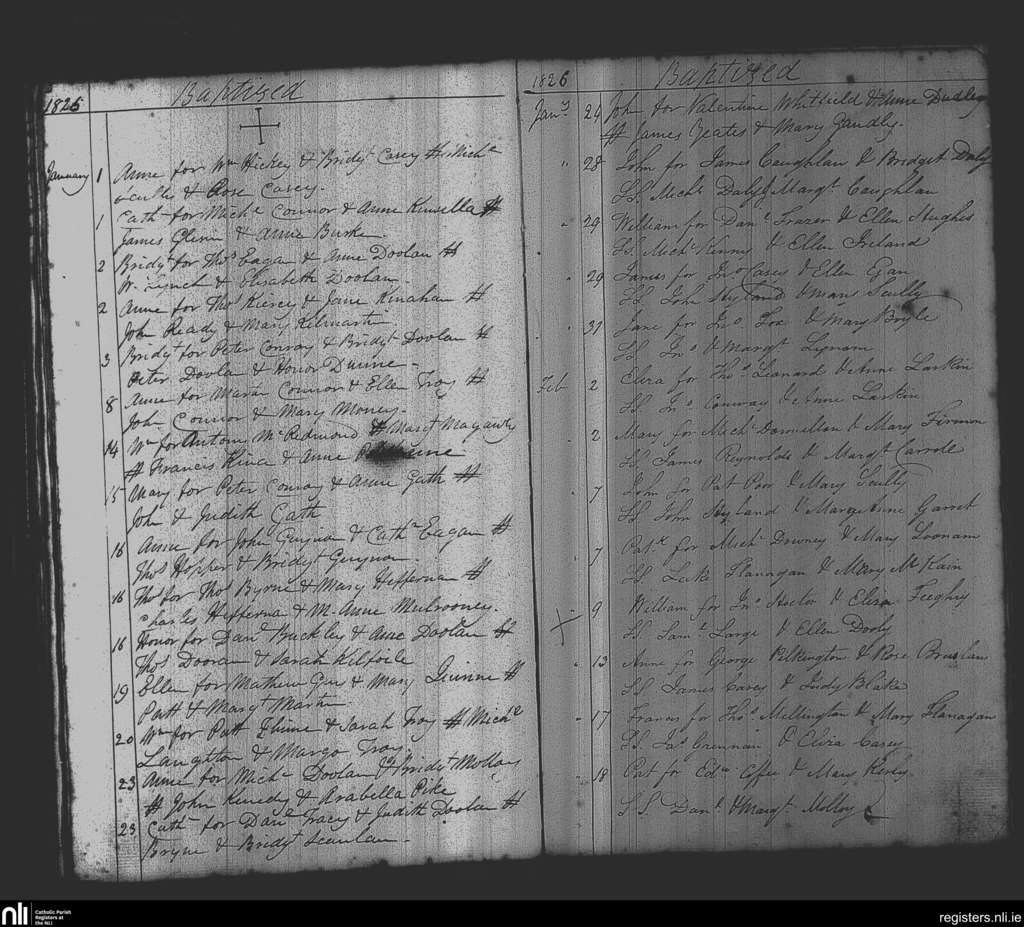 1826
Baptized
January 1 Anne for Wm Hickey & Bridgt Casey # Miche
& Rose Casey.
1 Cathe for Miche Connor & Anne Kinsella #
James Glenn & Anne Burke.
2 Bridgt for Thos Eagan & Anne Doolan #
Wm Lynch & Elisabeth Doolan.
2 Anne for Thos Kiercy & Jane Kinahan #
John Ready & Mary Kilmartin
3 Bridgt for Peter Conroy & Bridgt Doolan #
Peter Doolan & Honor Dunne.
8 Anne for Martn Connor & Ellen Troy #
John Connor & Mary Mooney.
14 Wm for Antony McRedmond # Margt Magawly
# Francis & Anne
15 Mary for Peter Conroy & Anne Gath #
John & Judith Gath
16 Anne for John Guynan & Cathe Eagan #
Thos Hopper & Bridgt Guynan
16 Thos for Thos Byrne & Mary Hefferna #
Charles Hefferna & M. Anne Mulrooney.
16 Honor for Danl Buckley & Anne Doolan #
Thos Dooran & Sarah Kilfoile
19 Ellen for Mathew & Mary Quinne #
Patt & Margt Martin
20 Wm for Patt Dunne & Sarah Troy # Miche
Langtton & Margo Troy
23 Anne for Miche Doolan & Bridgt Molloy
# John Kenedy & Arabella Pike
23 Cathe for Danl Tracy & Judith Doolan #
Bryne & Bridgt Scanlan.
1826
Baptized
Jany 24 John for Valentine Whitfield & Anne Dudley
# James Yeates & Mary Gandly.
" 28 John for James Caughlan & Bridget Daly
SS. Michl Daly & Margt Caughlan
" 29 William for Danl Frazer & Ellen Hughes
SS. Michl Kenny & Ellen Ireland
" 29 James for Jno Casey & Ellen Egan
SS. John Hyland & Mary Scully
" 31 Jane for Jno Fox & Mary Boyle
SS. Jno & Margt Lynam
Feb 2 Eliza for Thos Leonard & Anne Larkin
SS. Jno Conway & Anne Larkin
" 2 Mary for Michl Donnellan & Mary
SS. James Reynolds & Margt Carode
" 7 John for Pat Poor & Mary Scully
SS. John Hyland & Margt Anne Garret
" 7 Patk for Michl Downey & Mary Loonam
SS. Luke Flanagan & Mary McKain
" 9 William for Jno Hector & Eliza Feeghry
SS. Saml Large & Ellen Dooly
" 13 Anne for George Pilkington & Rose Breslan
SS. James Carey & Judy Blake
" 17 Francis for Thos Mellington & Mary Flanagan
SS. Jas Crennan & Eliza Casey
" 18 Pat for Edwd Coffee & Mary Kerly
S.S. Danl & Margt Molloy
nli
Catholic Parish
Registers at
the NLI
registers.nli.ie